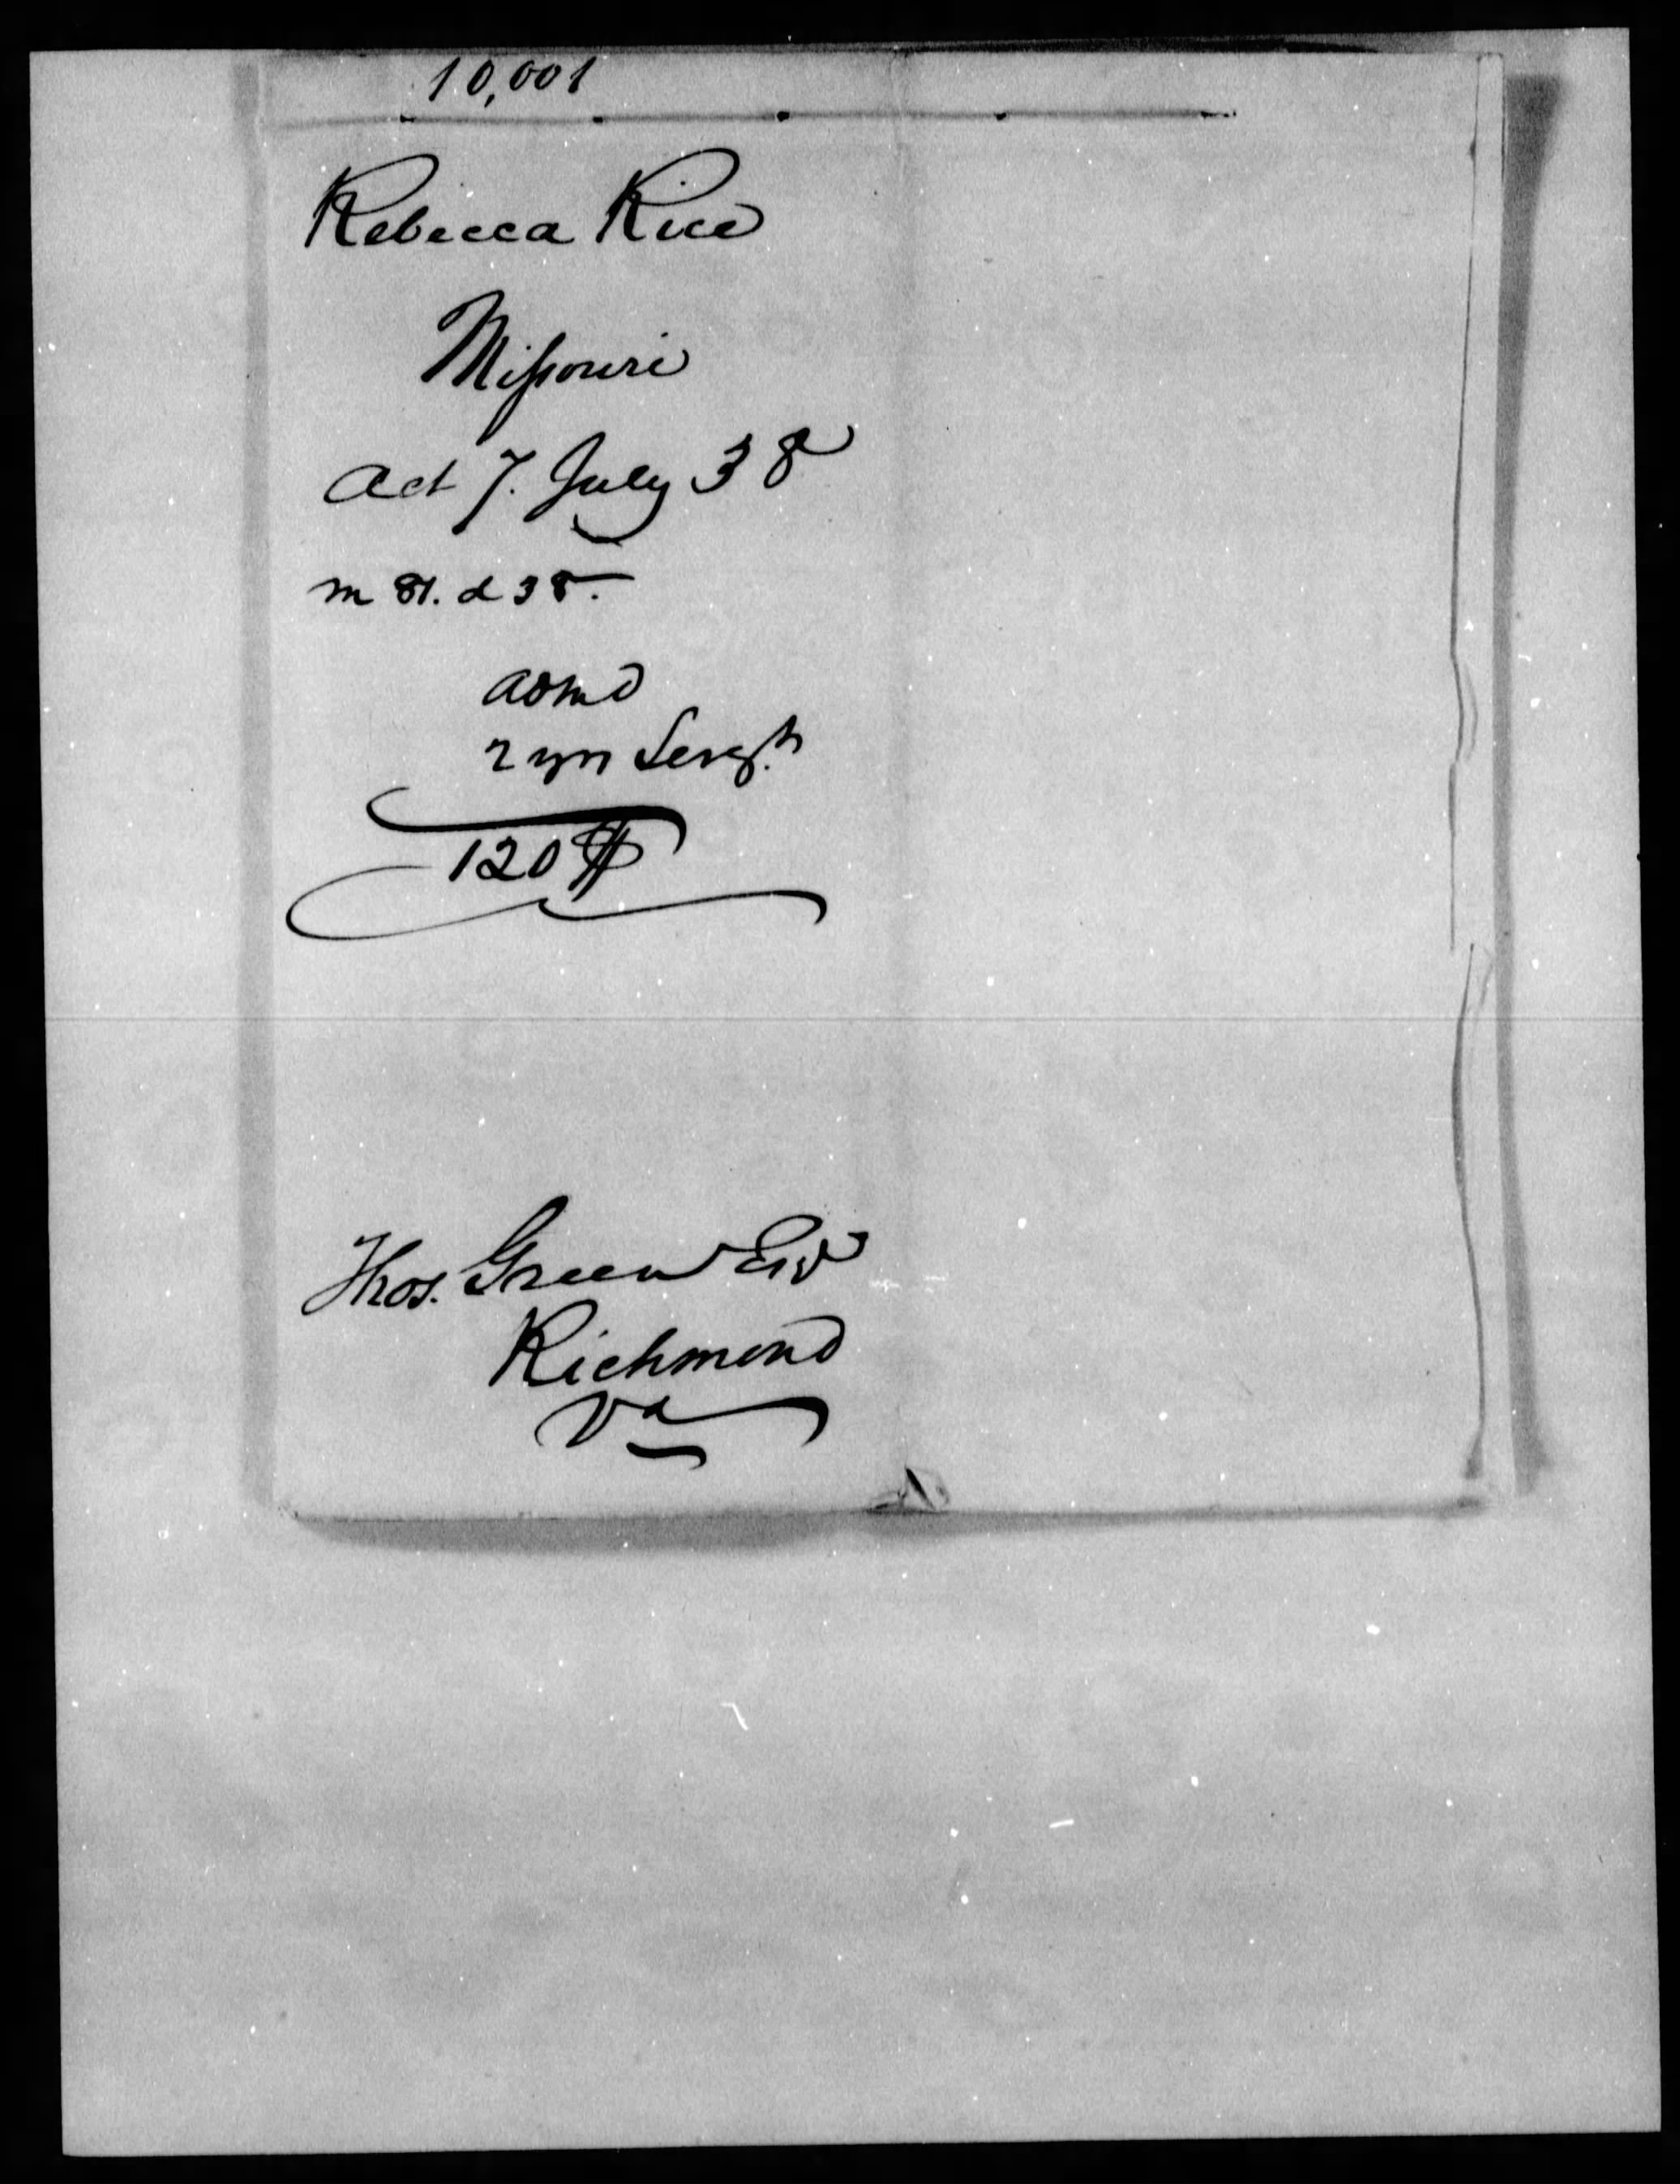 10,001
Rebecca Rice
Missouri
Act 7. July 38
m 81. d 38.
admd
2 yrs Sergt
120 $
Thos. Green Esqr
Richmond
Va